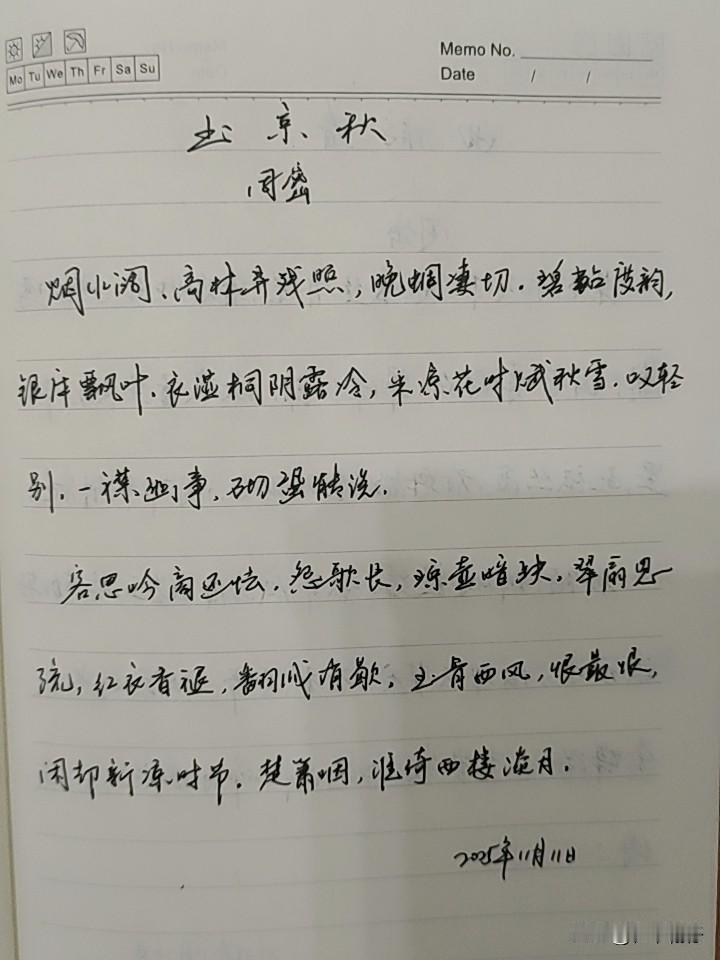 Memo No.
Mo Tu We Th Fr Sa Su
Date / /
玉京秋
周密
烟水阔、高林弄残照，晚蜩凄切．碧砧度韵，
银床飘叶．衣湿桐阴露冷，采凉花时赋秋雪．叹轻
别．一襟幽事，砌蛩能说．
客思吟商还怯．怨歌长，琼壶暗缺．翠扇恩
疏，红衣香褪，翻成消歇．玉骨西风，恨最恨，
闲却新凉时节．楚箫咽，谁倚西楼淡月．
2025年11月11日